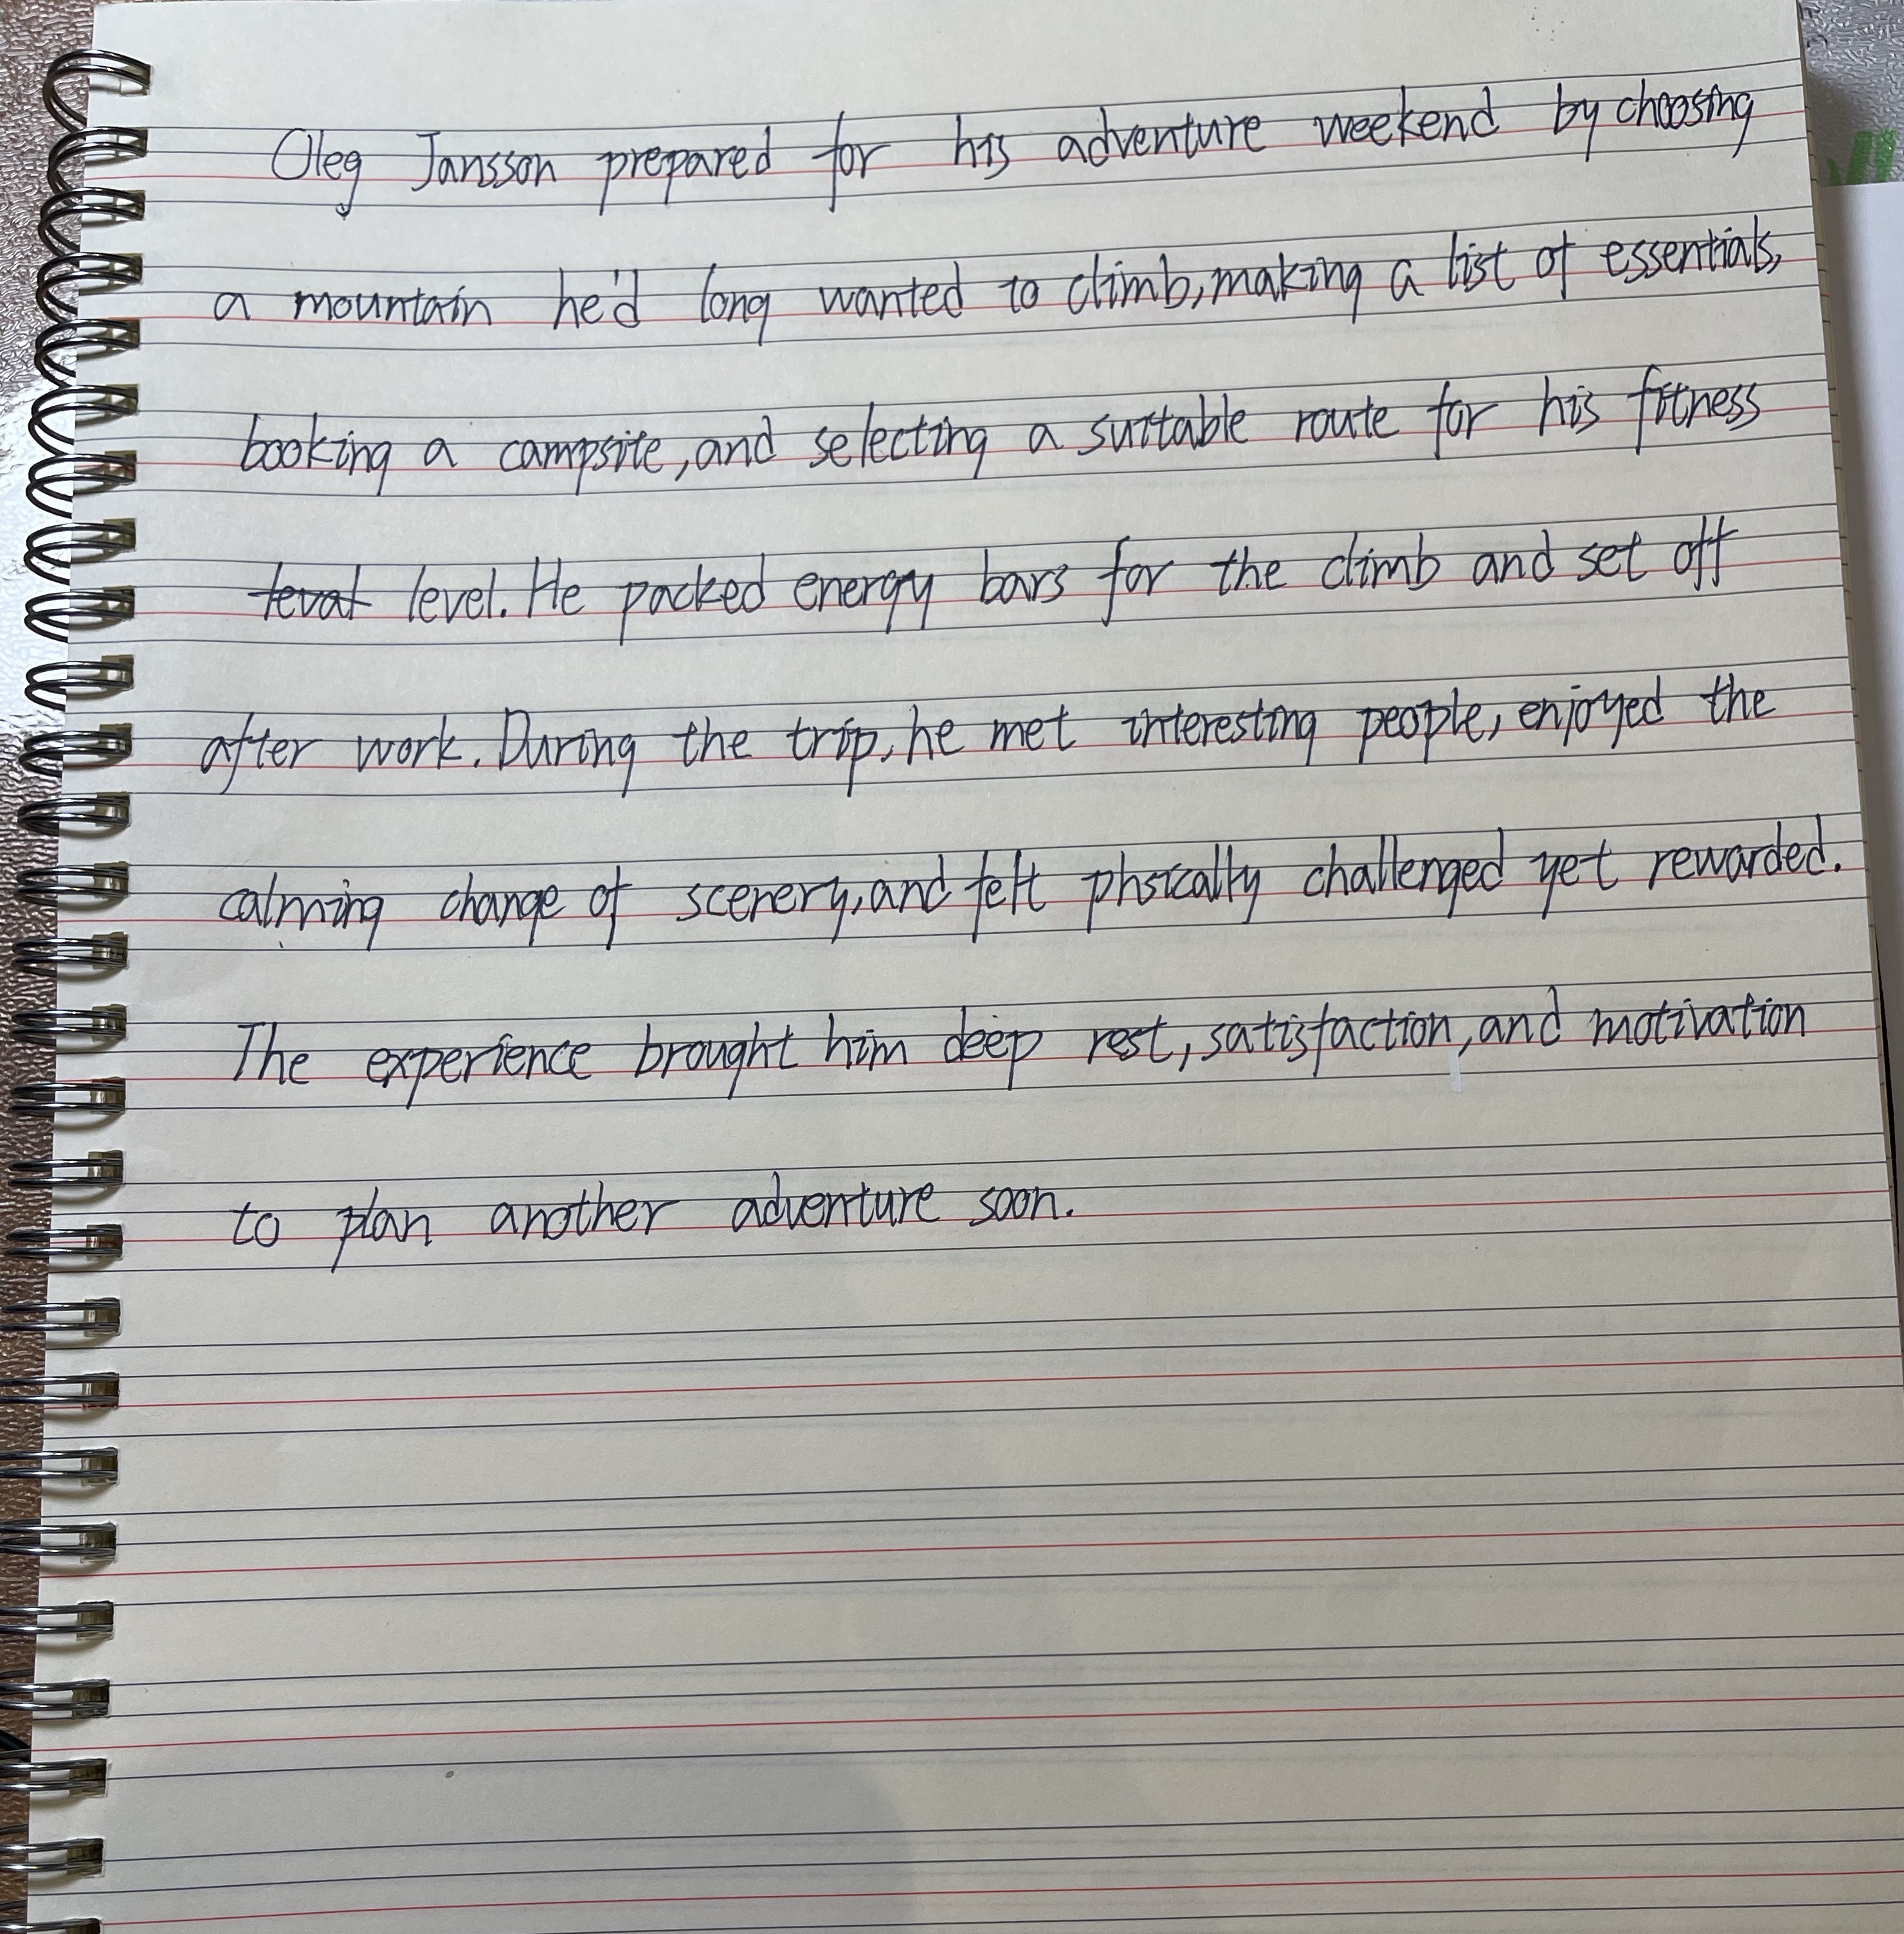 Oleg Jansson prepared for his adventure weekend by choosing
a mountain he'd long wanted to climb, making a list of essentials,
booking a campsite, and selecting a suitable route for his fitness
leval level. He packed energy bars for the climb and set off
after work. During the trip, he met interesting people, enjoyed the
calming change of scenery, and felt phsically challenged yet rewarded.
The experience brought him deep rest, satisfaction, and motivation
to plan another adventure soon.